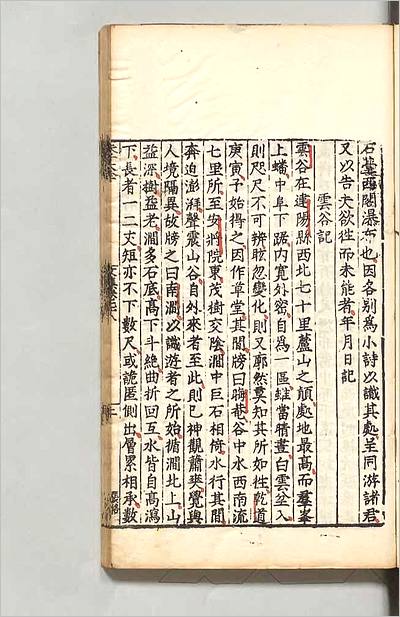 石䓫西閣瀑布也因各別為小詩以識其處呈同游諸君
又以告夫欲往而未能者年月日記
雲谷記
雲谷在建陽縣西北七十里蘆山之顛處地最高而羣峯
上蟠中阜下踞内寛外密自為一區雖當晴晝白雲坌入
則咫尺不可辨眩忽變化則又廓然莫知其所如徃乾道
庚寅予始得之因作草堂其間牓曰晦菴谷中水西南流
七里所至安將院東茂樹交陰澗中巨石相倚水行其間
奔迫澎湃聲震山谷自外來者至此則已神觀蕭爽覺與
人境隔異故牓之曰南澗以識游者之所始循澗北上山
益深樹益老澗多石底高下斗絶曲折回互水皆自高瀉
下長者一二丈短亦不下數尺或詭匿側出層累相承數